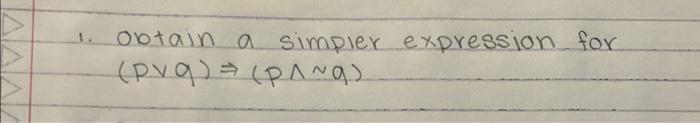 1. Obtain a simpler expression for
(p∨q) ⇒ (p∧~q)